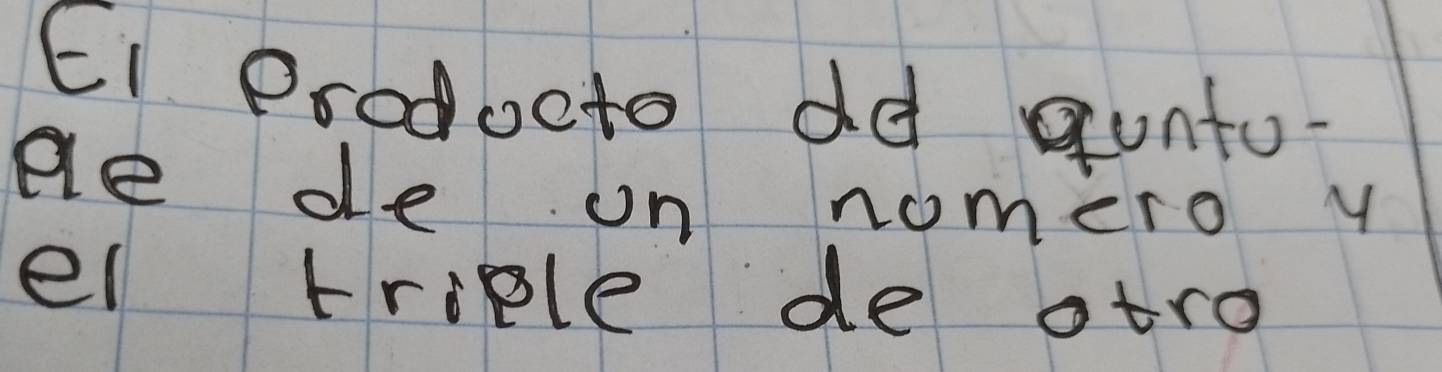 El Producto dd quntu-
ple de un numero y
el triple de otro